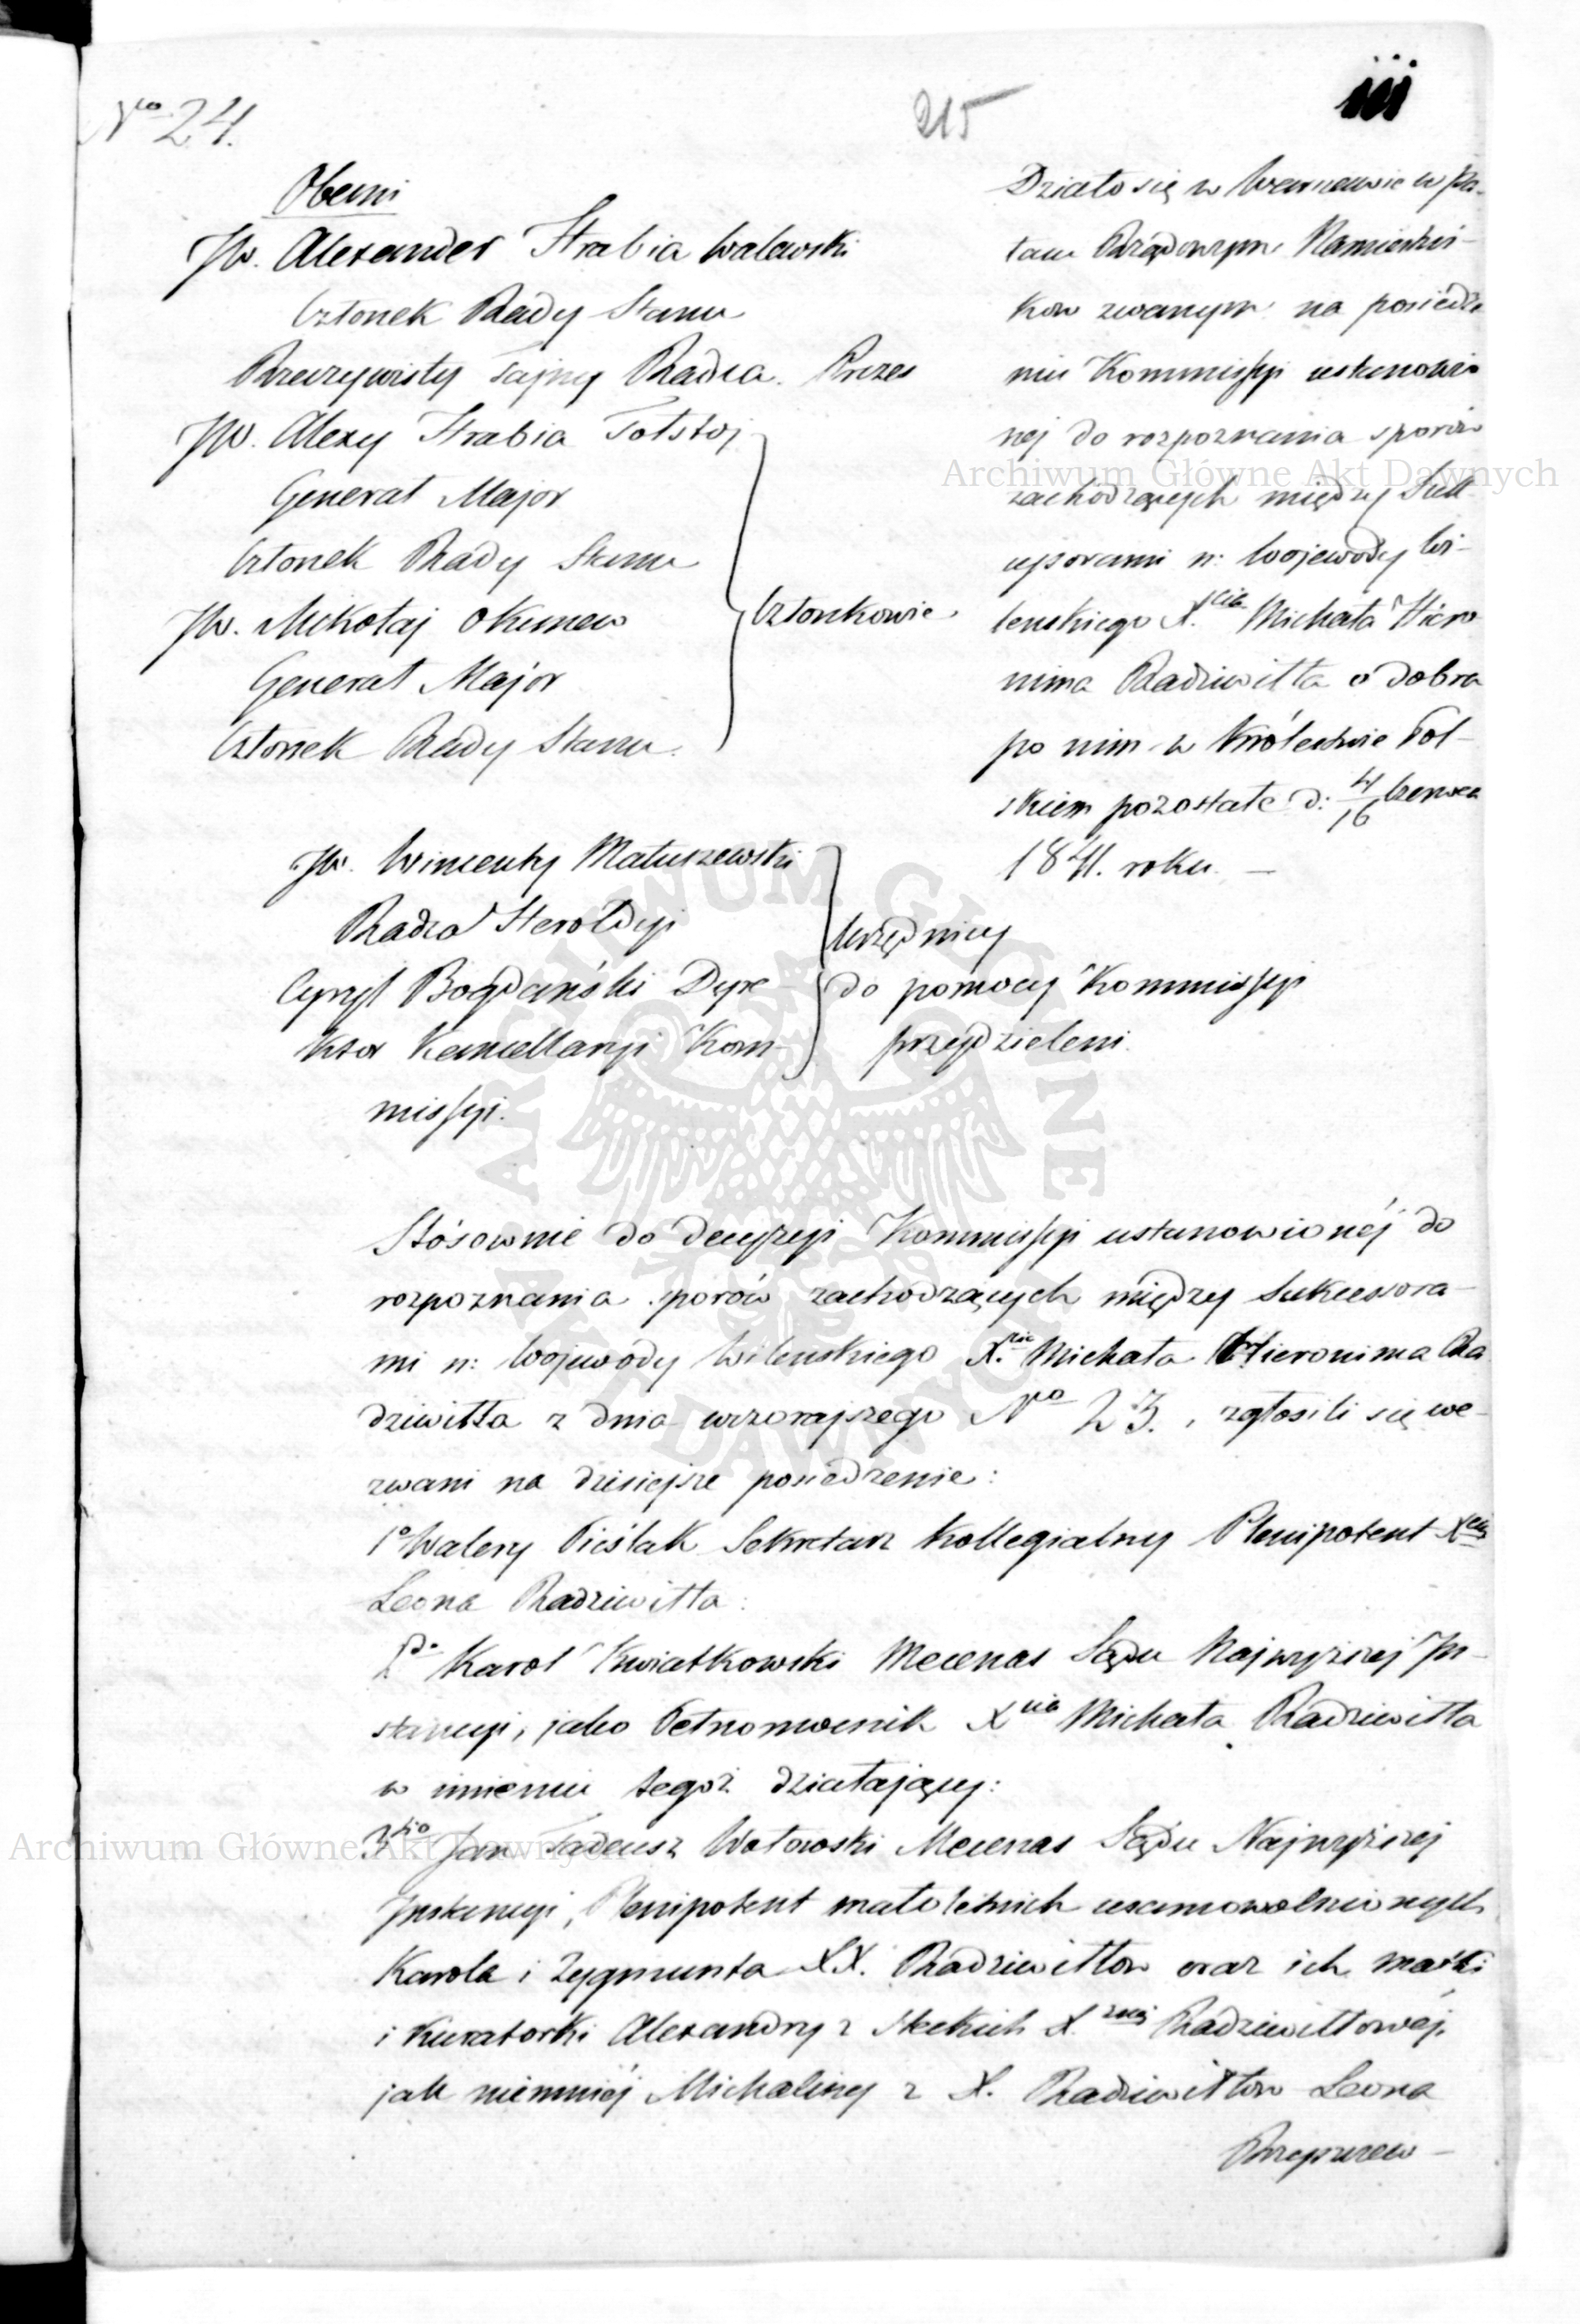 No 24.
215
iii
Obecni
JW. Alexander Hrabia Walewski
Członek Rady Stanu
Rzeczywisty Tajny Radca. Prezes
JW. Alexy Hrabia Tołstoj
Generał Major
Członek Rady Stanu
JW. Mikołaj Okunew
Generał Major
Członek Rady Stanu.
Członkowie
JW. Wincenty Matuszewski
Radca Heroldyi
Cyryl Bogdański Dyre-
ktor Kancellaryi Kom-
missyi.
Urzędnicy
do pomocy Kommissyi
przydzieleni.
Działo się w Warszawie w Pa-
łacu Rządowym Namiestni-
ków zwanym na posiedze
niu Kommissyi ustanowio
nej do rozpoznania sporów
zachodzących między Suk-
cessorami n: Wojewody Wi-
leńskiego X.cia Michała Hiero
nima Radziwiłła o dobra
po nim w Królestwie Pol-
skiem pozostałe d: 4/16 Czerwca
1841. roku. —
Stósownie do decyzyi Kommissyi ustanowionéj do
rozpoznania sporów zachodzących między Sukcessora-
mi n: Wojewody Wileńskiego X.cia Michała Hieronima Ra
dziwiłła z dnia wczorajszego No 23., zgłosili się we-
zwani na dzisiejsze posiedzenie:
1o Walery Pieślak Sekretarz Kollegialny Plenipotent Xcia
Leona Radziwiłła:
2do Karol Kwiatkowski Mecenas Sądu Najwyższej In-
stancyi, jako Pełnomocnik Xcia Michała Radziwiłła
w imieniu tegoż działający:
3tio Jan Tadeusz Wołowski Mecenas Sądu Najwyższej
Instancyi, Plenipotent małoletnich usamowolnionych
Karola i Zygmunta XX. Radziwiłłów oraz ich matki
i Kuratorki Alexandry z Steckich X.żnej Radziwiłłowéj,
jak niemniéj Michaliny z X. Radziwiłłów Leona
Rzyszczew-
Archiwum Główne Akt Dawnych
Archiwum Główne Akt Dawnych
ARCHIWUM GŁÓWNE AKT DAWNYCH